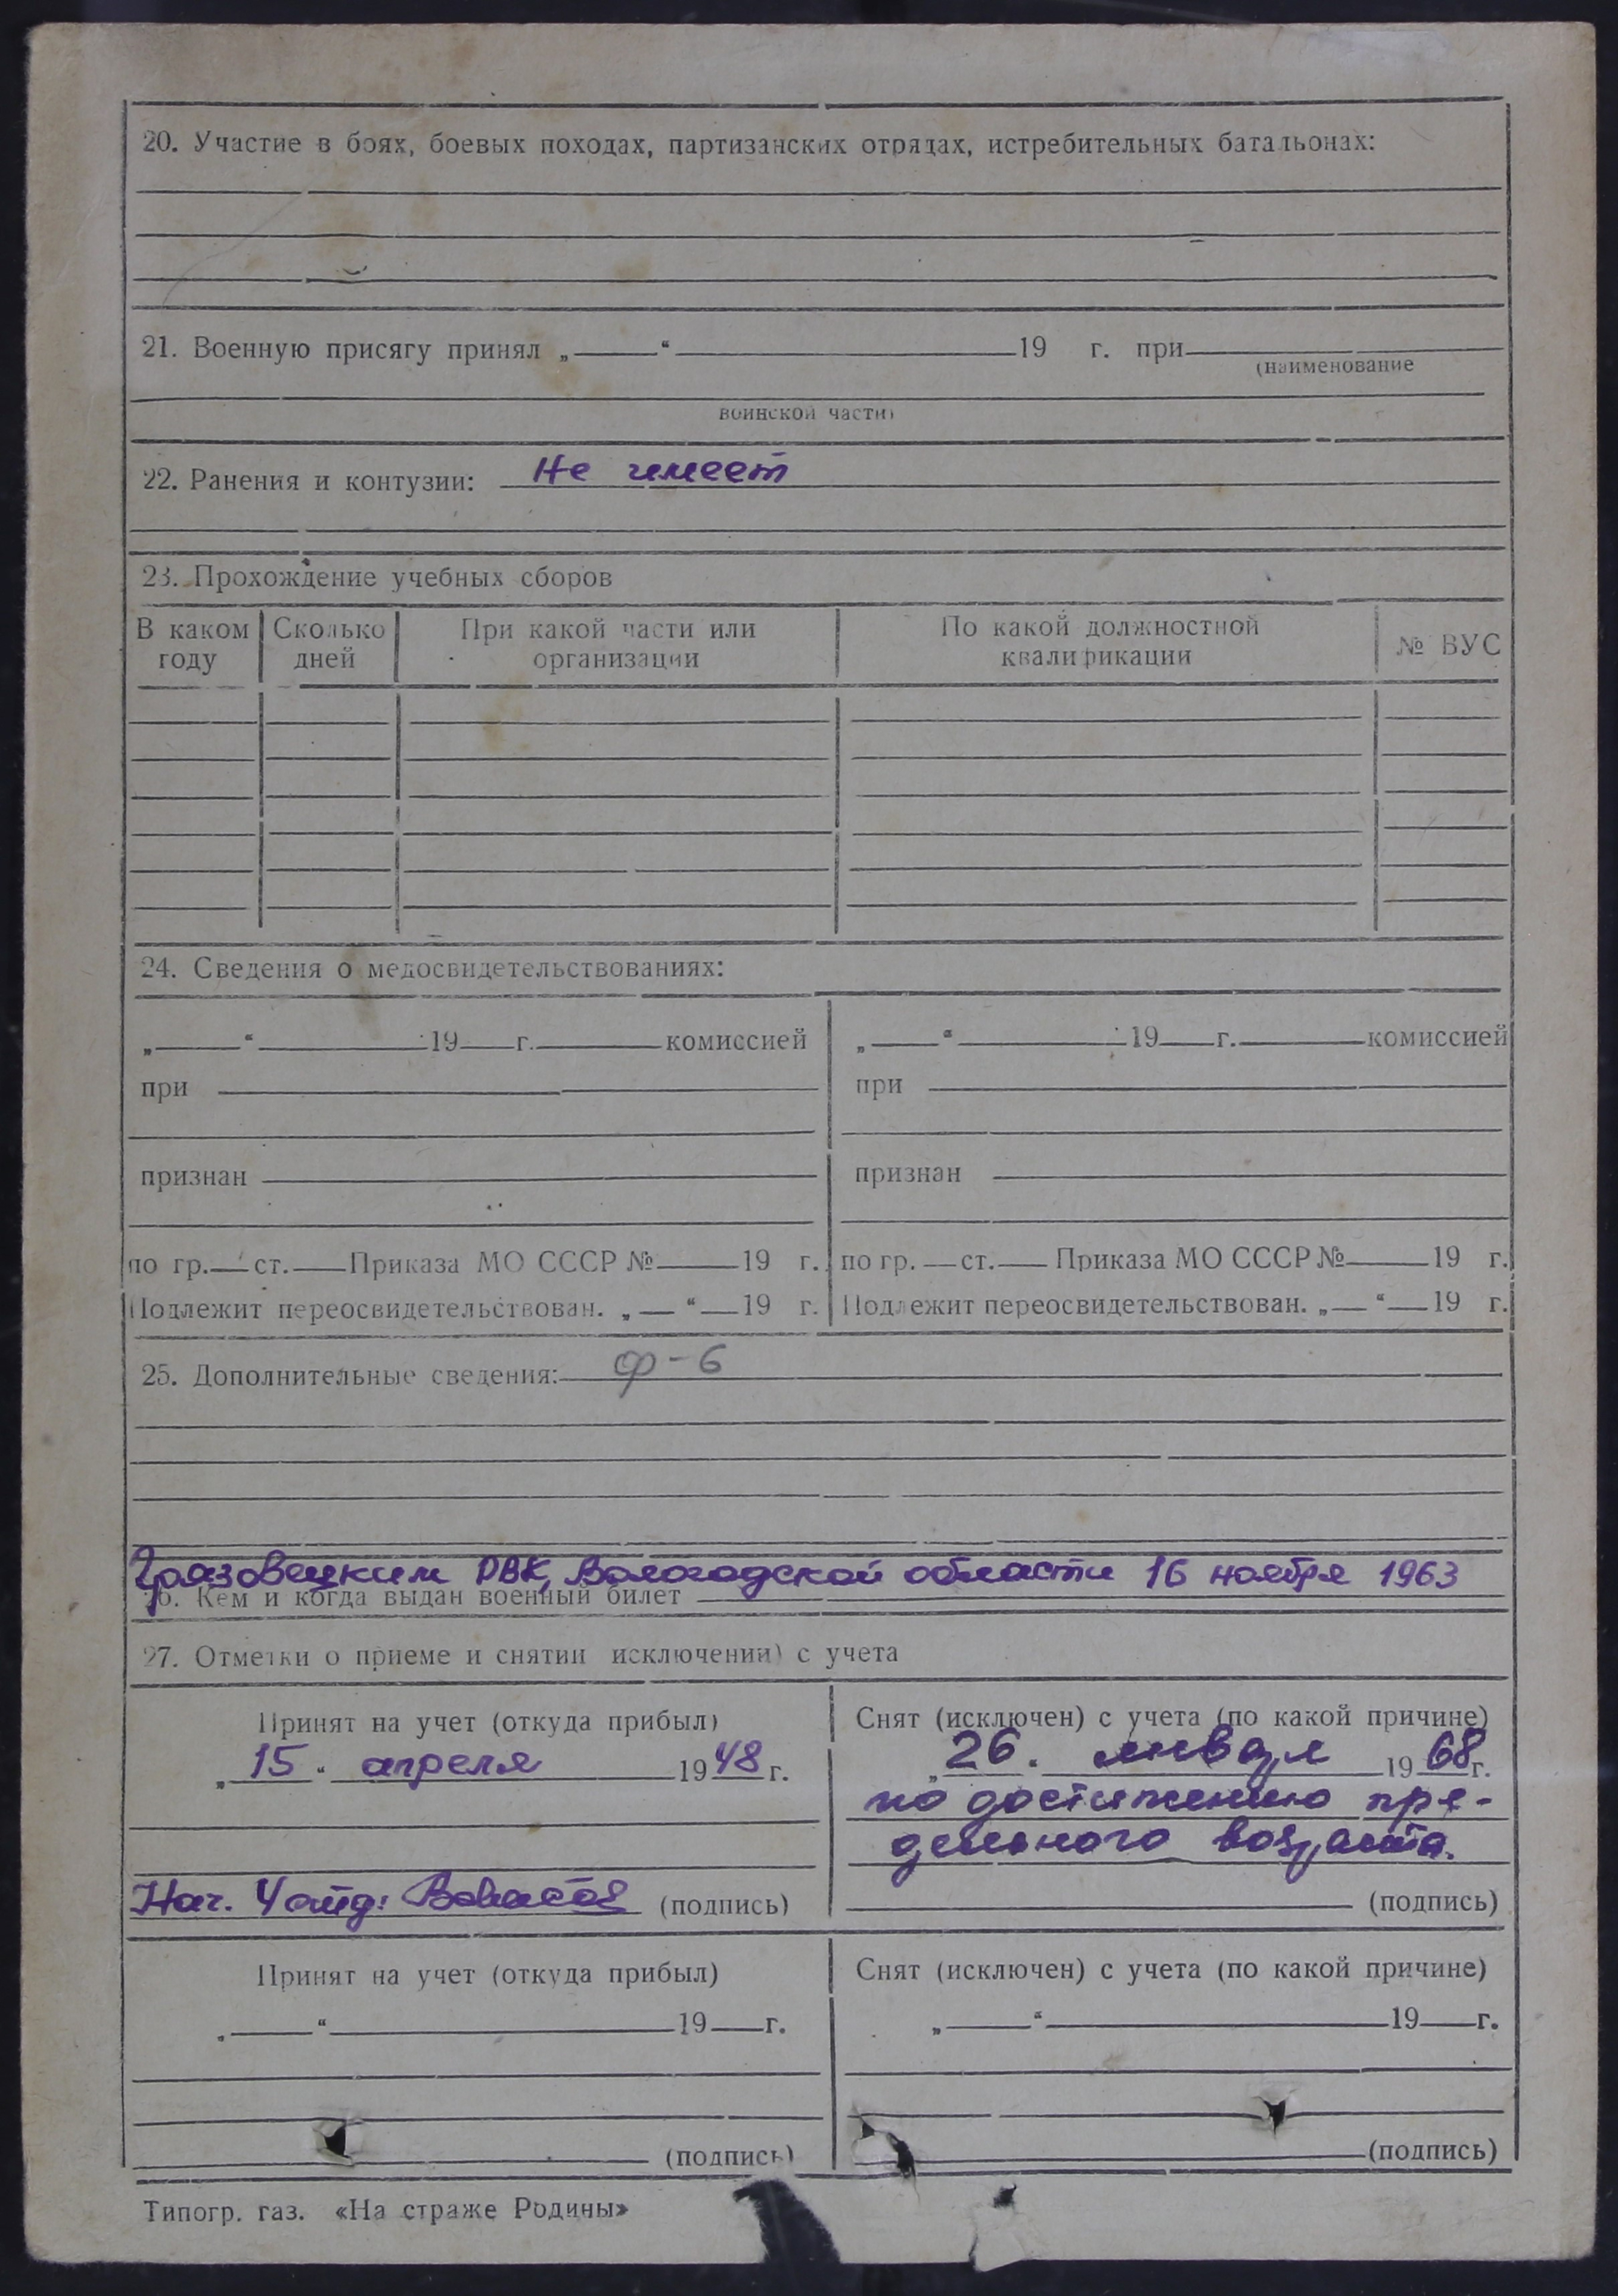 20. Участие в боях, боевых походах, партизанских отрядах, истребительных батальонах:
21. Военную присягу принял „ “ 19 г. при
(наименование
воинской части)
22. Ранения и контузии: Не имеет
23. Прохождение учебных сборов
В каком году
Сколько дней
При какой части или организации
По какой должностной квалификации
№ ВУС
24. Сведения о медосвидетельствованиях:
„ “ 19 г. комиссией
при
признан
по гр. ст. Приказа МО СССР № 19 г.
Подлежит переосвидетельствован. „ “ 19 г.
„ “ 19 г. комиссией
при
признан
по гр. ст. Приказа МО СССР № 19 г.
Подлежит переосвидетельствован. „ “ 19 г.
25. Дополнительные сведения: ф-6
Грязовецким РВК, Вологодской области 16 ноября 1963
26. Кем и когда выдан военный билет
27. Отметки о приеме и снятии исключении) с учета
Принят на учет (откуда прибыл)
„15“ апреля 1948 г.
Нач. (подпись)
Снят (исключен) с учета (по какой причине)
„26. января 1968 г.
по достижению пре-
дельного возраста.
(подпись)
Принят на учет (откуда прибыл)
„ “ 19 г.
(подпись)
Снят (исключен) с учета (по какой причине)
„ “ 19 г.
(подпись)
Типогр. газ. «На страже Родины»